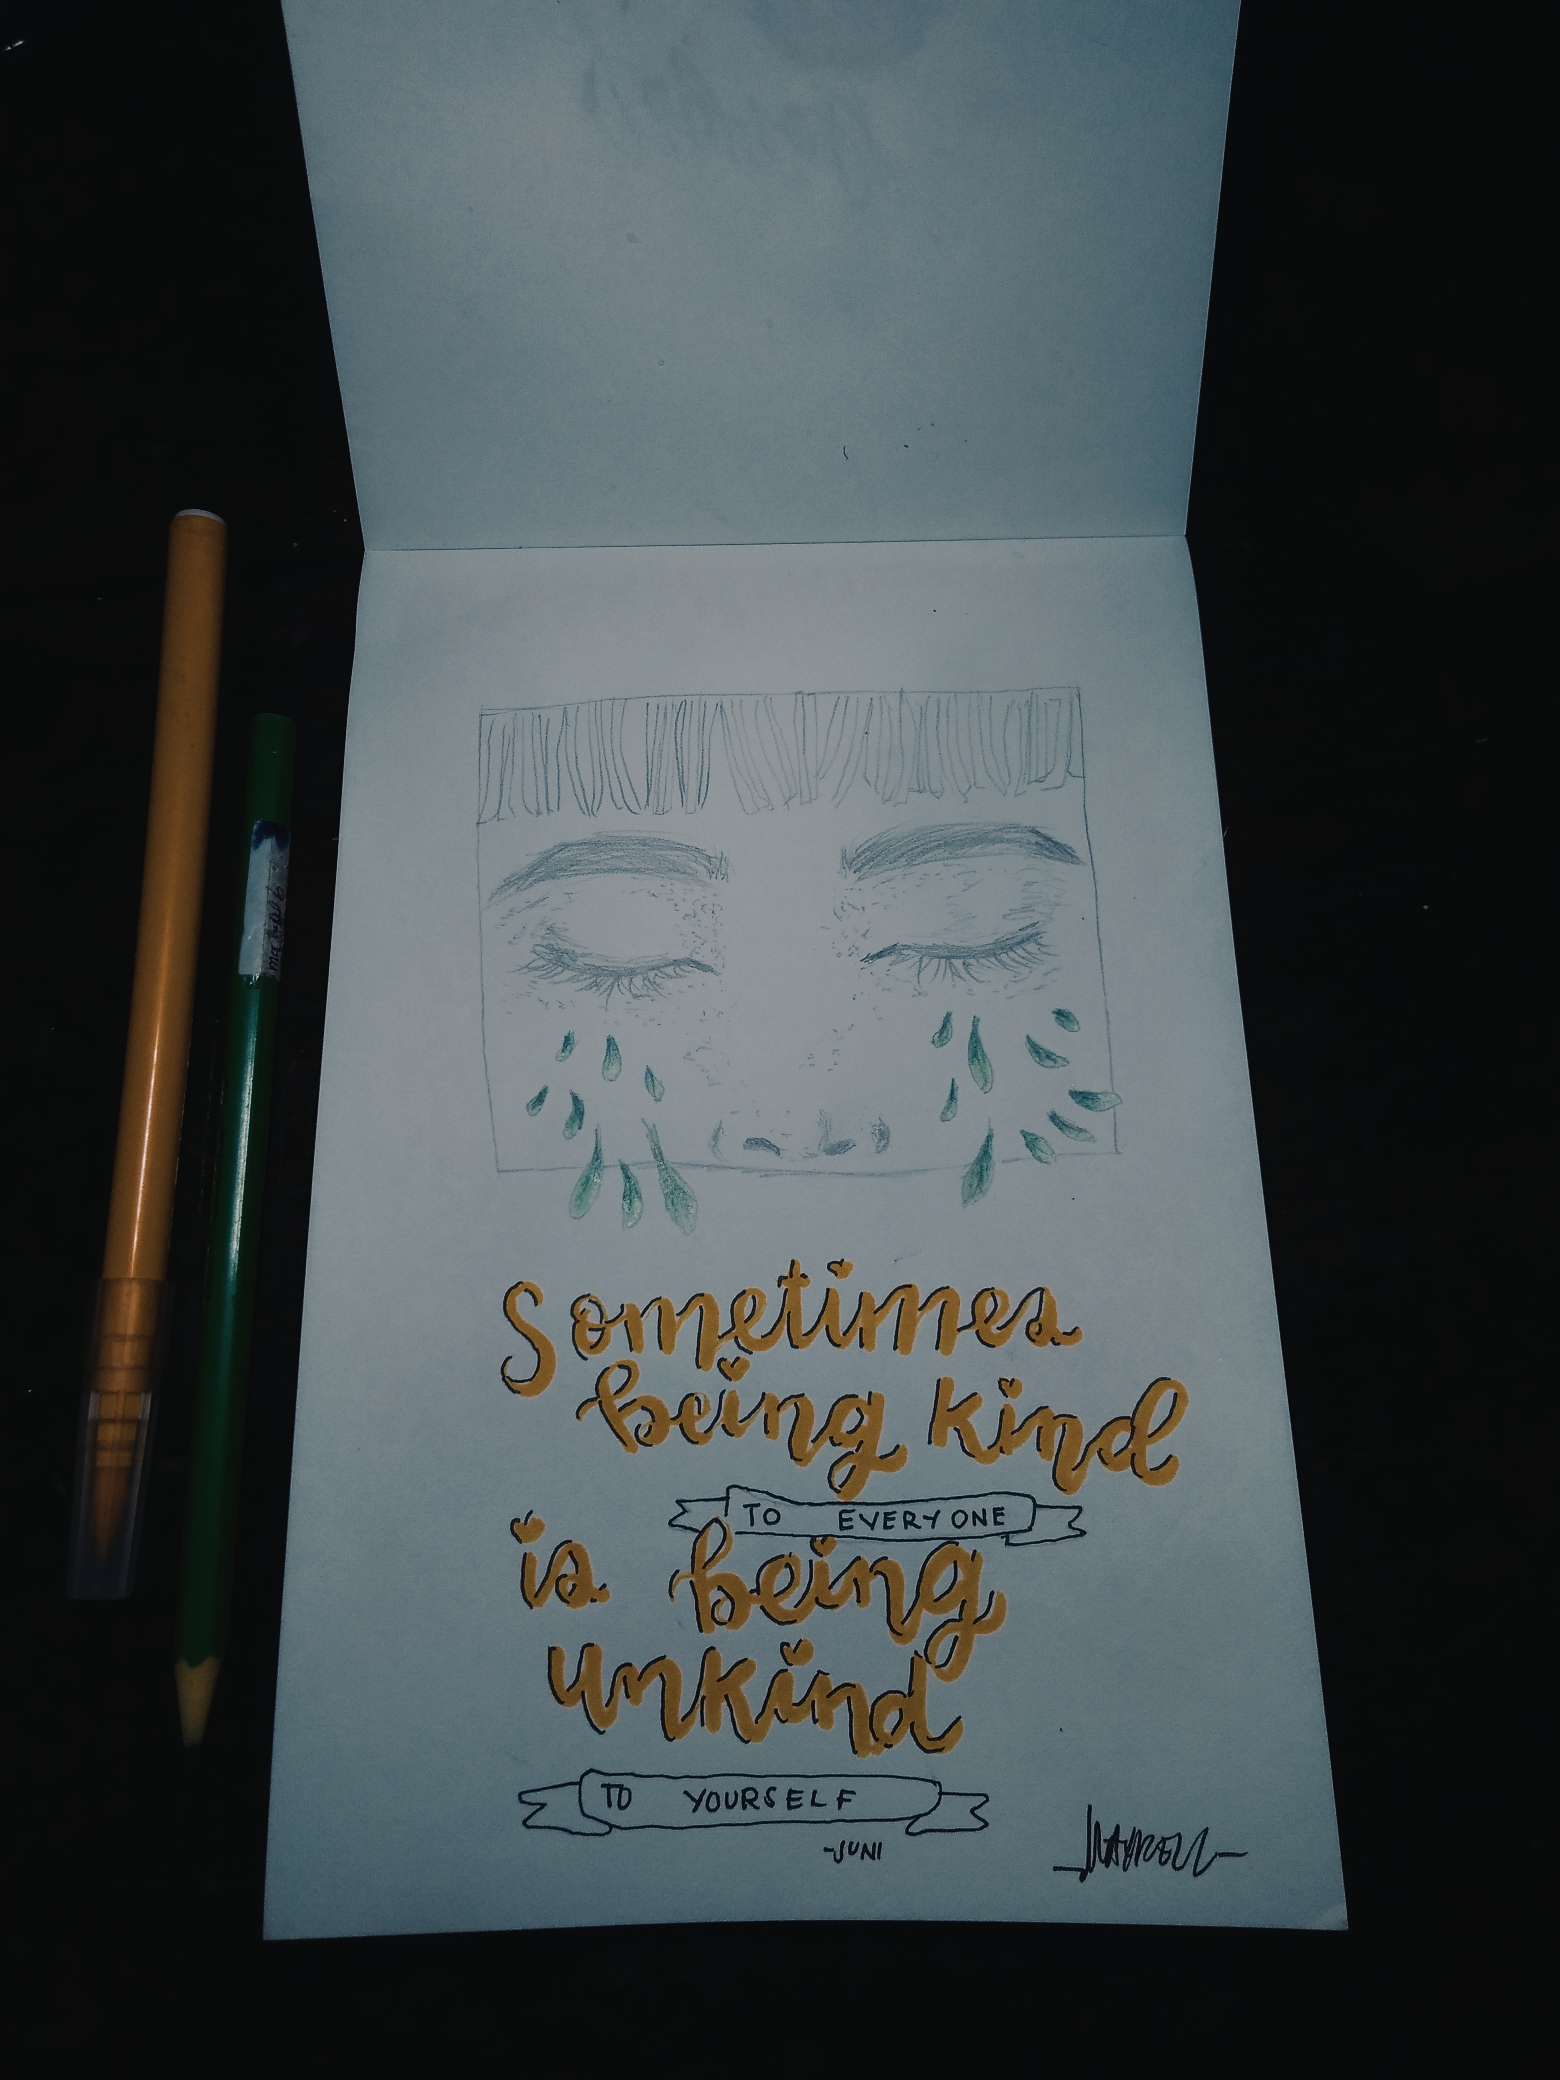 Sometimes
being kind
TO EVERYONE
is being
unkind
TO YOURSELF
-JUNI